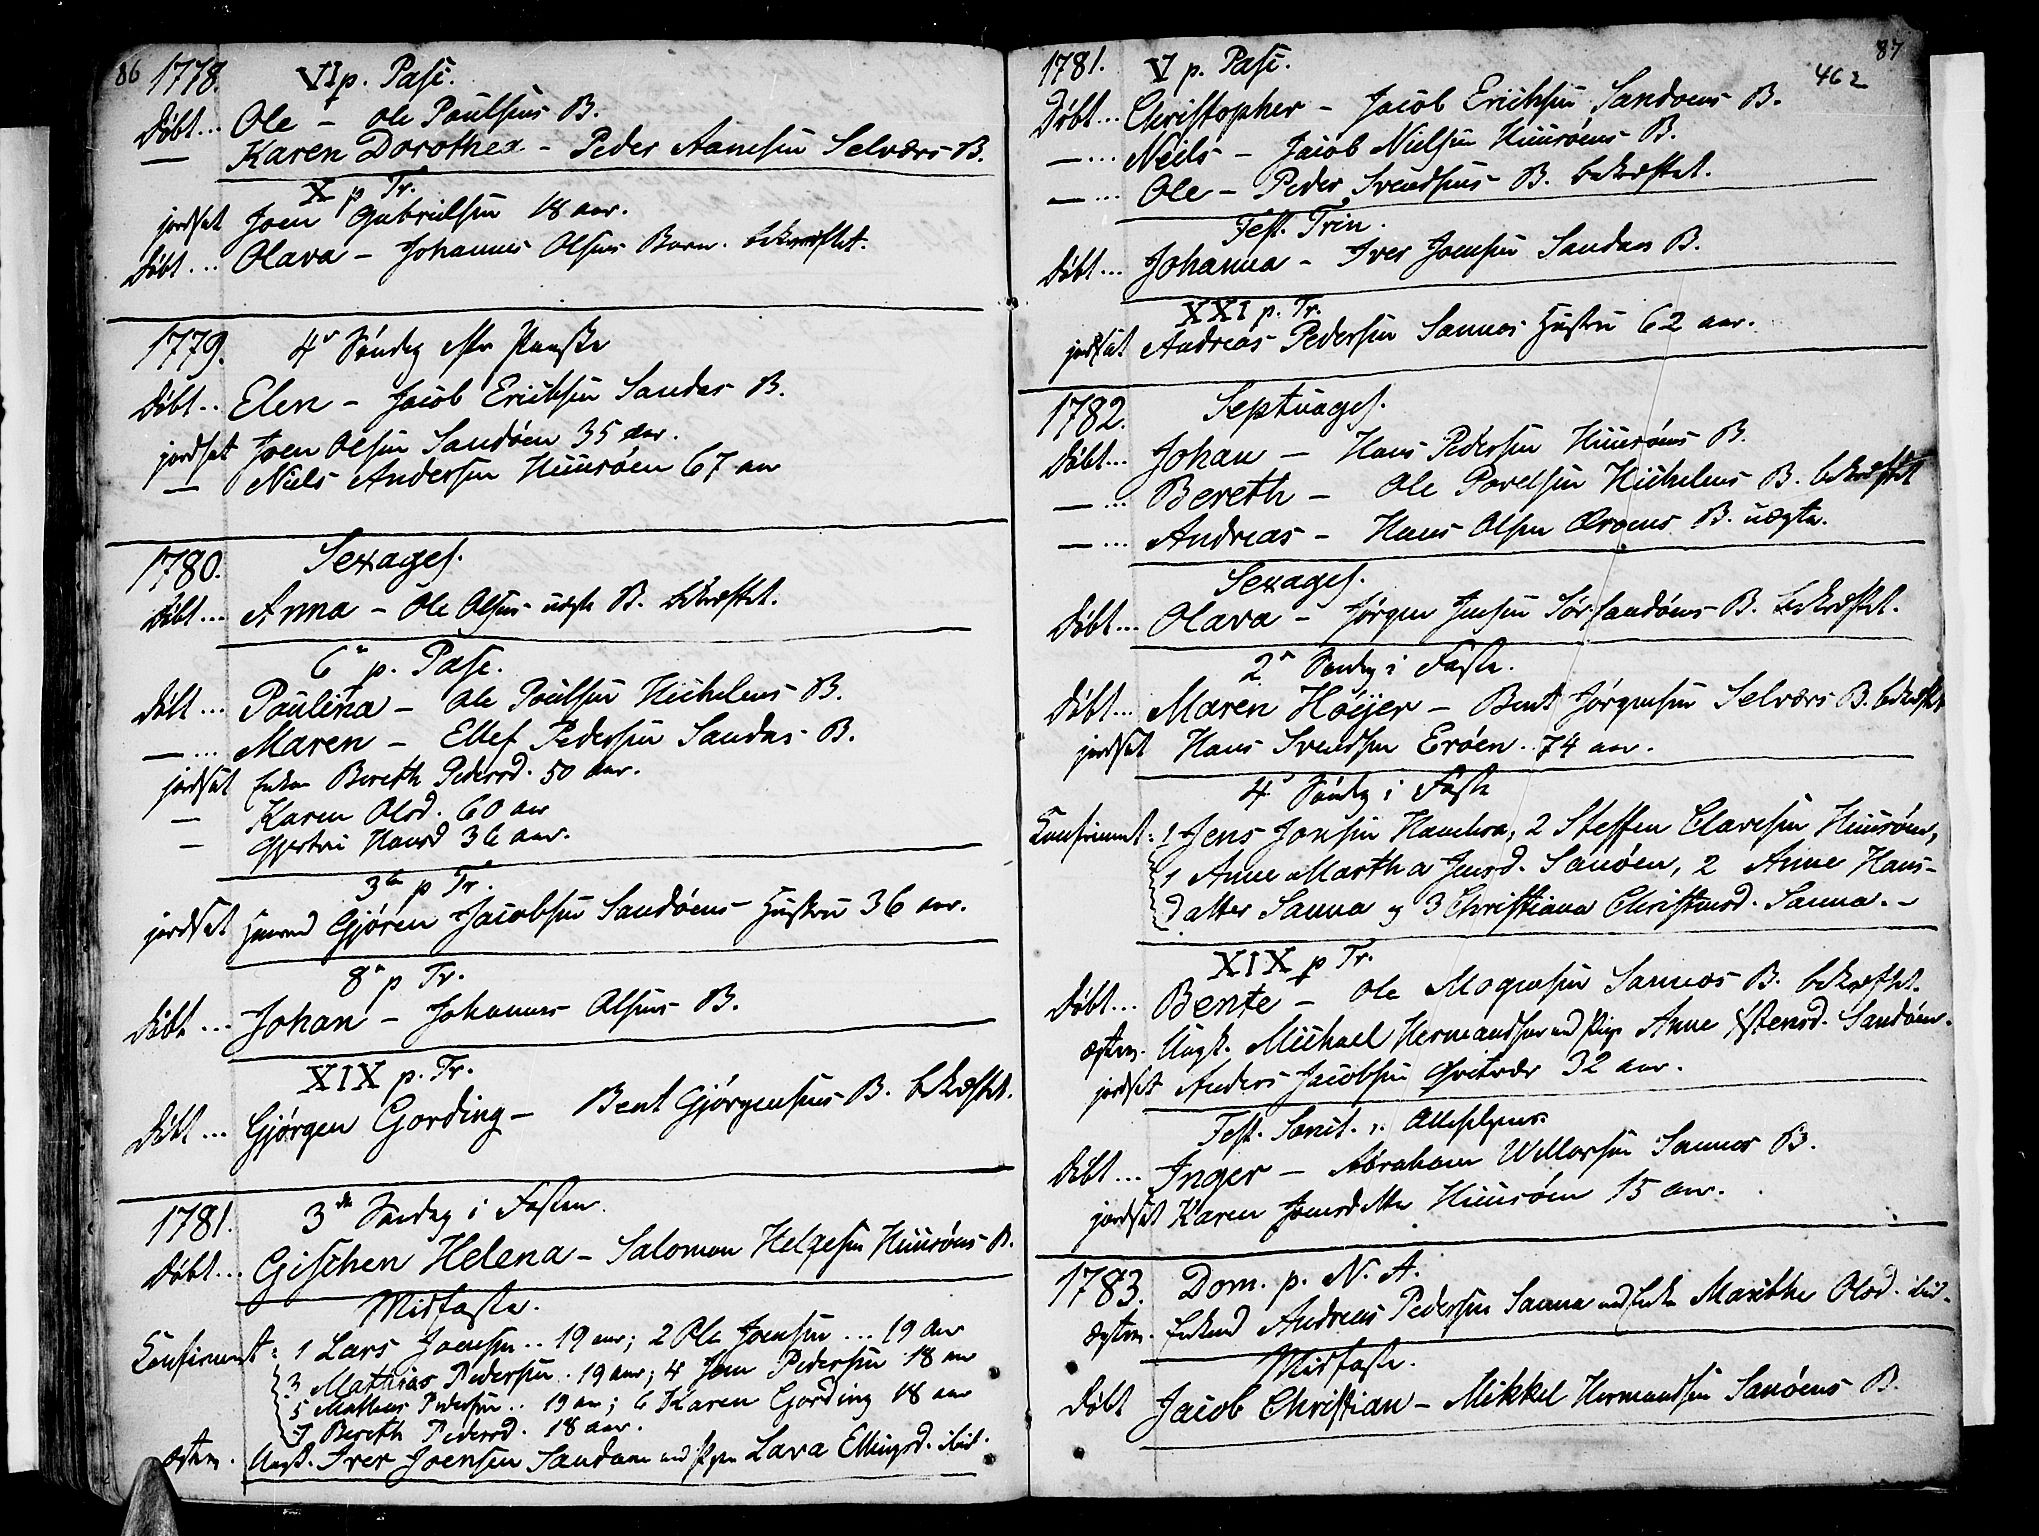 86
1778. VI p. Pasc.
Døbt... Ole - Ole Poulsens B.
— Karen Dorothea - Peder Aanesen Selværs B.
X p Tr.
jordsat Joen Gabrielsen 18 aar.
Døbt... Olava - Johannes Olsens Barn. bekræftet.
1779. 4de Søndag efter Paaske
Døbt.. Elen - Jacob Erichsen Sandas B.
jordsat Joen Olsen Sandøen 35 aar.
— Niels Andersen Huusøen 67 aar
1780. Sexages.
Døbt... Anna - Ole Olsens uægte B. bekræftet.
6te p. Pasc.
Døbt... Paulina - Ole Poulsen Kickelens B.
—... Maren - Ellef Pedersen Sandas B.
jordsat Enken Bereth Pedersd. 50 aar.
— Karen Olsd. 60 aar
— Gjertru Hansd 36 aar.
3de p Tr.
jordsat Huusmand Gjøren Jacobsen Sandøens Hustru 36 aar.
8de p Tr.
Døbt... Johan - Johannes Olsens B.
XIX p. Tr.
Døbt... Gjørgen Gording - Bent Gjørgensens B. bekræftet.
1781. 3de Søndag i Fasten.
Døbt... Gischen Helena - Salomon Helgesen Huusøens B.
Midfaste.
Confirmert: 1 Lars Joensen.. 19 aar; 2 Ole Joensen... 19 Aar
3 Mathias Pedersen.. 19 aar; 4 Joen Pedersen 18 aar
5 Matheus Pedersen.. 19 aar; 6 Karen Gording 18 aar
7 Bereth Pedersd. 18 aar.
Ægtev. Ungk. Iver Joensen Sandaas med Pigen Lava Ellingsd. ibid.
87
462
1781. V p. Pasc.
Døbt... Christopher - Jacob Erichsen Sandoens B.
—... Neils - Jacob Nielsen Huusøens B.
—... Ole - Peder Svendsens B. bekræftet.
Fest. Trin.
Døbt... Johanna - Iver Joensen Sandaas B.
XXI p. Tr.
jordsat Andreas Pedersen Sannes Hustru 62 aar.
1782. Septuages.
Døbt... Johan - Hans Pedersen Huusøens B.
—... Bereth - Ole Povelsen Kichelens B. bekræftet
—... Andreas - Hans Olsen Ærøens B. uægte.
Sexages.
Døbt... Olava - Jørgen Jensen Sørsandøens B. bekræftet.
2den Søndag i Faste.
Døbt... Maren Höijer - Bent Jørgensen Selværs B. bekræftet
jordsat Hans Svendsen Erøen. 74 aar.
4de Søndag i Faste
Confirmert: 1 Jens Jonsen Hamlera, 2 Steffen Clavesen Huusøens,
1 Anne Martha Jensd. Sanøen, 2 Anne Hans-
datter Sanna og 3 Christiana Christensd. Sanna. -
XIX p Tr.
Døbt... Bente - Ole Mogensen Sannas B. bekræftet.
Ægtev. Ungk. Michael Hermandsen med Pige Anne Istensd. Sandøen.
jordsat Anders Jacobsen Qvitvær 32 aar.
Fest. Sanct. :. Allehelgens.
Døbt... Inger - Abraham Willarsen Sannas B.
jordsat Karen Joensdatter Huusøen 15 aar.
1783. Dom. p. N. A.
Ægtev. Enkemd Andreas Pedersen Sanna med Enke Marithe Olsd. ibid.
Midfaste.
Døbt Jacob Christian - Mikkel Hermandsen Sanøens B.